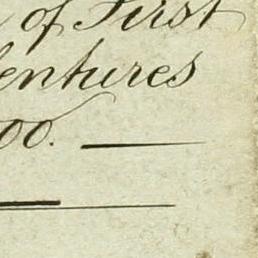 of First
entures
00.